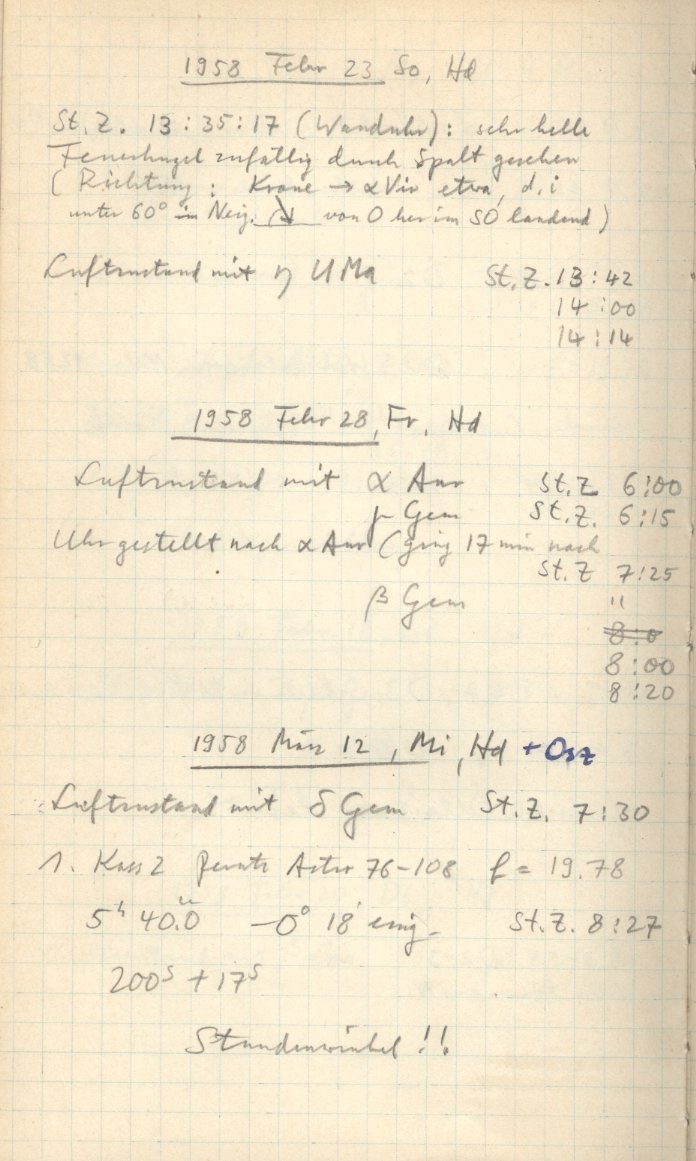 1958 Febr 23 So, Hd
St. Z. 13:35:17 (Wanduhr): sehr helle
Feuerkugel zufällig durch Spalt gesehen
(Richtung: Krone → α Vir etwa, d. i
unter 60° in Neig. von O her im SO landend)
Luftzustand mit η UMa St. Z. 13:42
14:00
14:14
1958 Febr 28, Fr, Hd
Luftzustand mit α Aur St. Z. 6:00
Gem St. Z. 6:15
Uhr gestellt nach α Aur (ging 17 min nach
St. Z 7:25
β Gem "
8:0
8:00
8:20
1958 März 12, Mi, Hd + Osz
Luftzustand mit δ Gem St. Z. 7:30
1. Kass 2 Perutz Astro 76-108 f = 19.78
5ʰ 40.0ᵐ -0° 18' eing. St. Z. 8:27
200ˢ + 17ˢ
Stundenwinkel !!